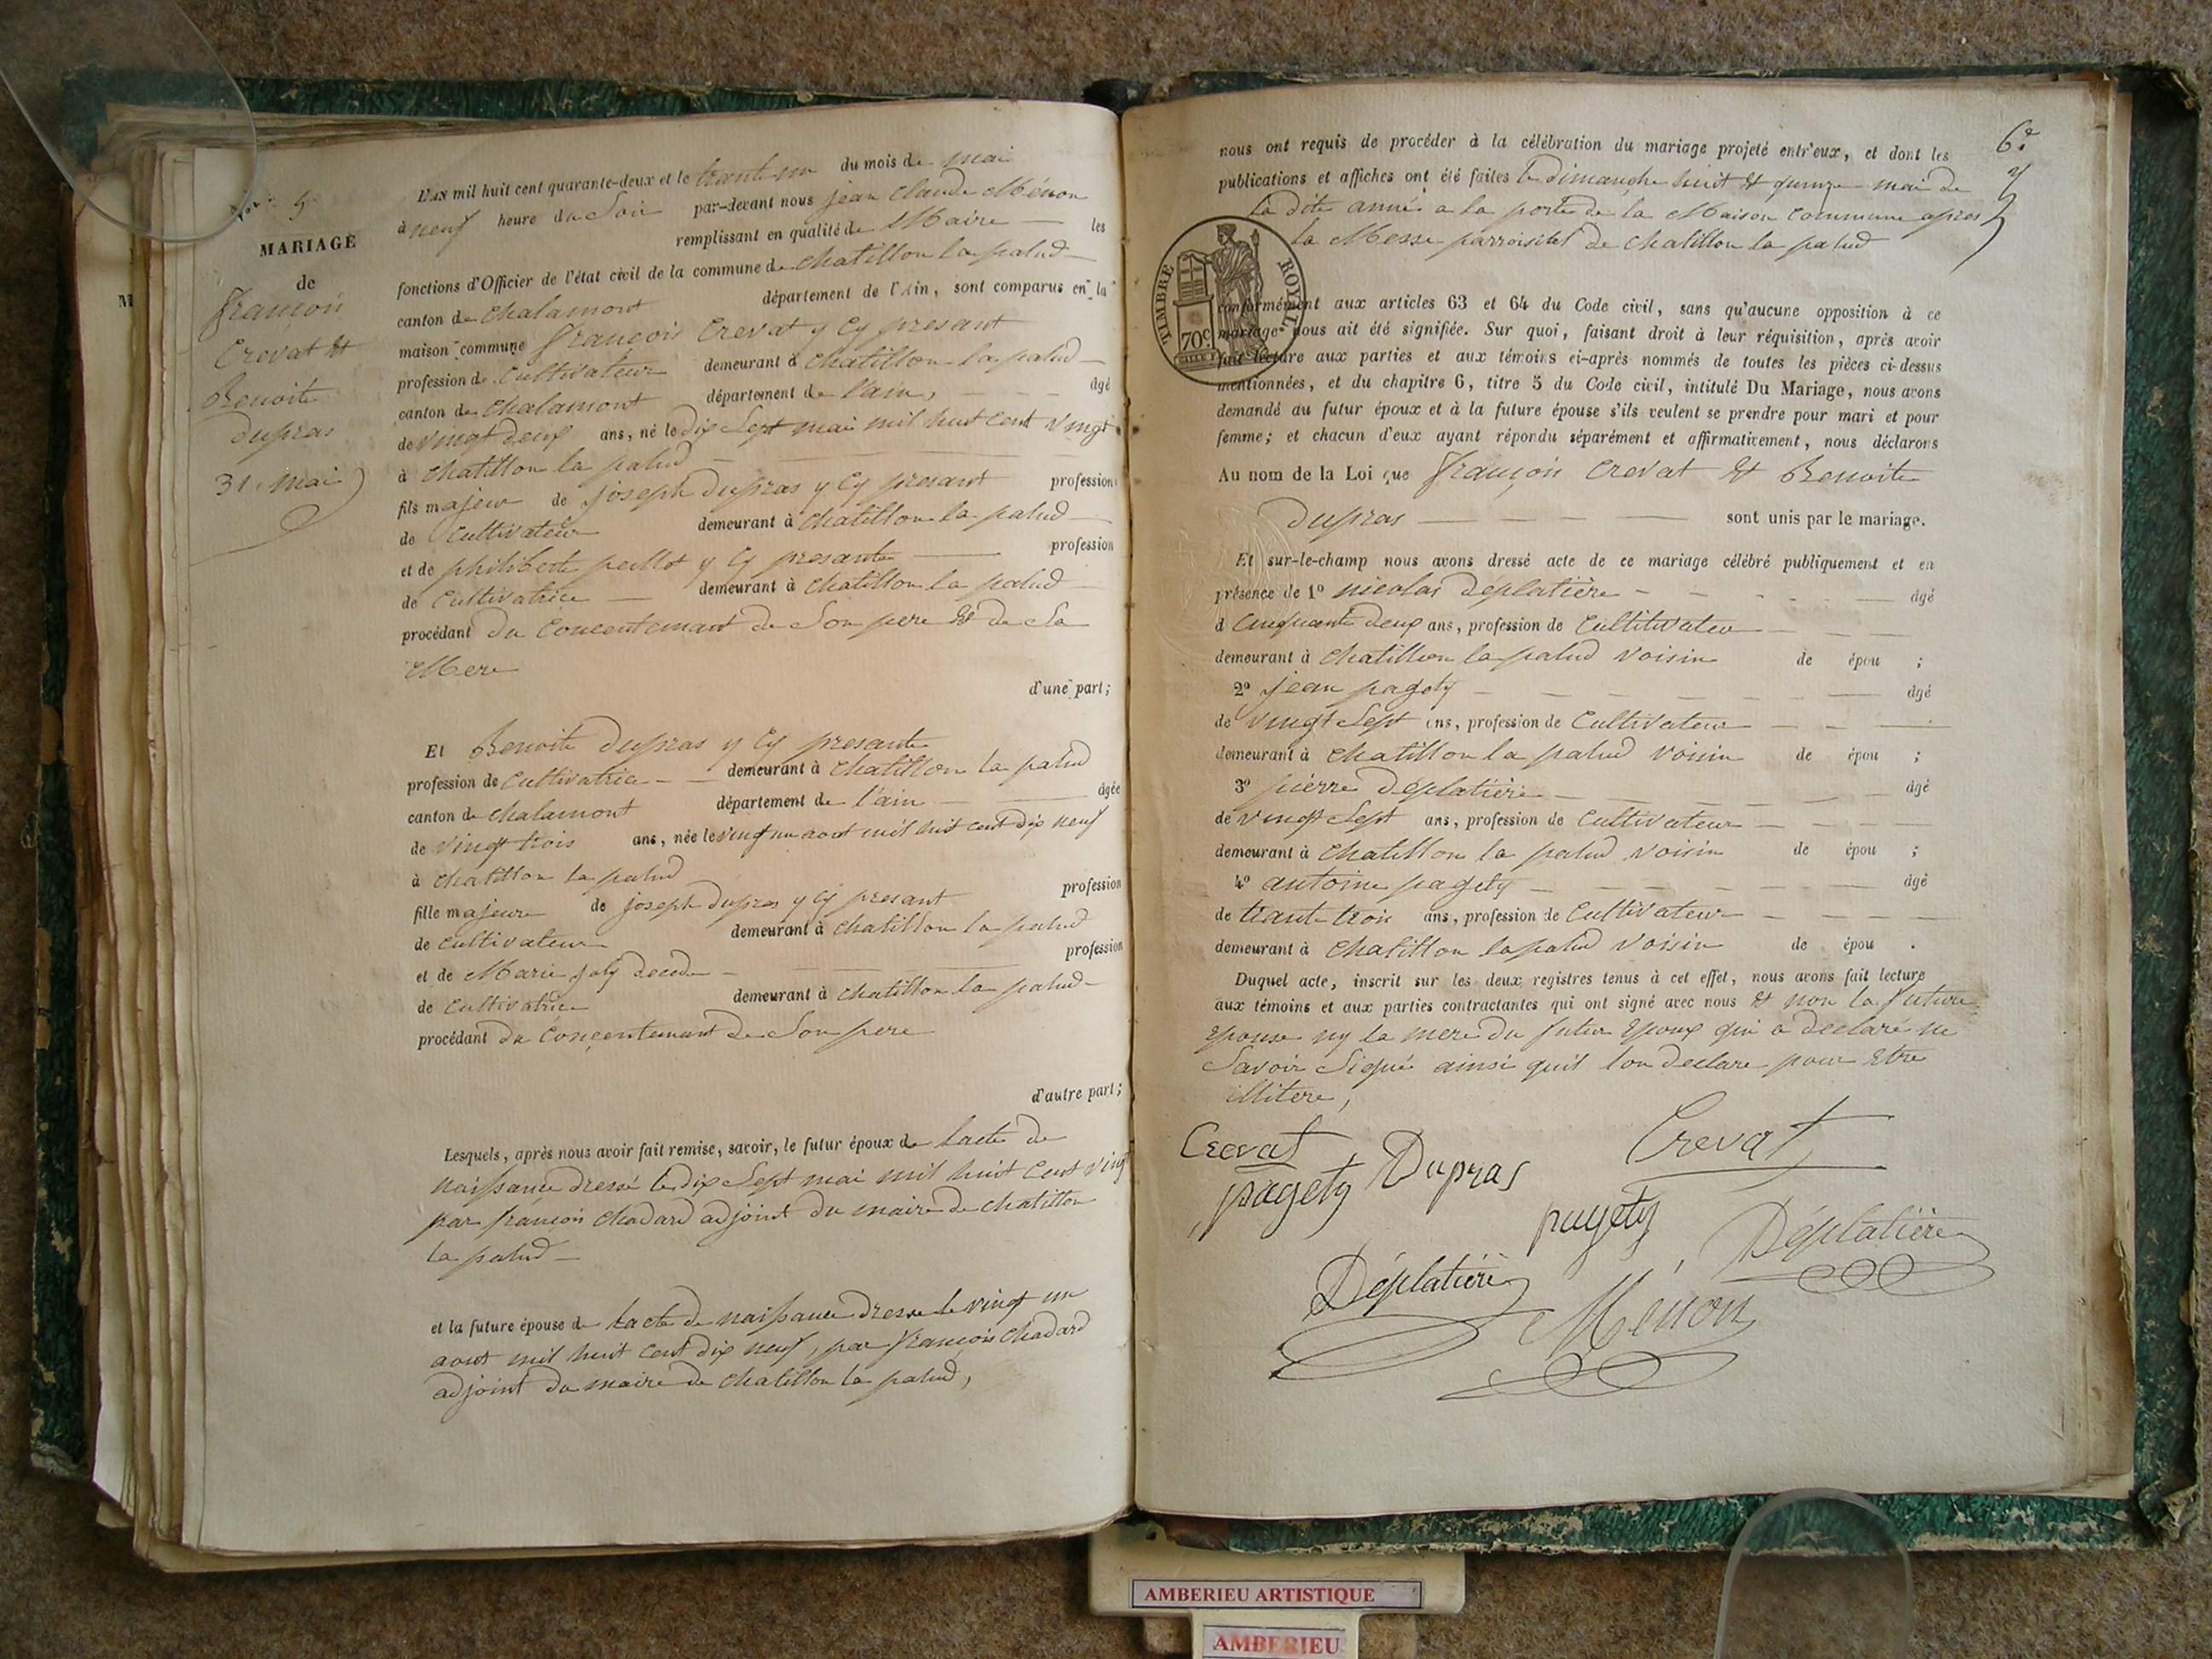 Nº 5
MARIAGE
de
françois
Crevat &
Benoite
dupras
31 Mai
L'AN mil huit cent quarante-deux et le trante un du mois de mai
à neuf heure du Soir par-devant nous jean Claude Ménon
remplissant en qualité de Maire les
fonctions d'Officier de l'état civil de la commune de chatillon la palud
canton de Chalamont département de l'Ain, sont comparus en la
maison commune françois Crevat y Cy presant
profession de Cultivateur demeurant à chatillon la palud
canton de Chalamont département de l'ain, âgé
de vingt deux ans, né le dix Sept mai mil huit cent vingt
à chatillon la palud
fils majeur de joseph dupras y Cy presant profession
de Cultivateur demeurant à chatillon la palud
et de philiberte peillot y Cy presante profession
de Cultivatrice demeurant à chatillon la palud
procédant du Concentemant de Son pere & de Sa
Mere
d'une part;
Et Benoite dupras y Cy presante
profession de Cultivatrice demeurant à chatillon la palud
canton de chalamont département de l'ain âgée
de vingt trois ans, née le vingt un aout mil huit cent dix neuf
à chatillon la palud
fille majeure de joseph dupras y Cy presant profession
de cultivateur demeurant à chatillon la palud
et de Marie joly decede profession
de Cultivatrice demeurant à chatillon la palud
procédant du Conçentemant de Son pere
d'autre part;
Lesquels, après nous avoir fait remise, savoir, le futur époux de lacte de
naissance dressé le dix Sept mai mil huit cent vingt
par françois chadard adjoint du maire de chatillon
la palud
et la future épouse de lacte de naissance dresse le vingt un
aout mil huit cent dix neuf, par françois chadard
adjoint du maire de chatillon la palud,
6e
nous ont requis de procéder à la célébration du mariage projeté entr'eux, et dont les
publications et affiches ont été faites le dimanche huit & quinze mai de
la dite année a la porte de la Maison Commune apres
la Messe parroisiel de chatillon la palud
TIMBRE ROYAL
70c
conformément aux articles 63 et 64 du Code civil, sans qu'aucune opposition à ce
mariage nous ait été signifiée. Sur quoi, faisant droit à leur réquisition, après avoir
fait lecture aux parties et aux témoins ci-après nommés de toutes les pièces ci-dessus
mentionnées, et du chapitre 6, titre 5 du Code civil, intitulé Du Mariage, nous avons
demandé au futur époux et à la future épouse s'ils veulent se prendre pour mari et pour
femme; et chacun d'eux ayant répondu séparément et affirmativement, nous déclarons
Au nom de la Loi que françois Crevat & Benoite
dupras sont unis par le mariage.
Et sur-le-champ nous avons dressé acte de ce mariage célébré publiquement et en
présence de 1º nicolas deplatière âgé
d Cinquante deux ans, profession de Cultivateur
demeurant à chatillon la palud voisin de épou ;
2º jean pagety âgé
de vingt Sept ans, profession de Cultivateur
demeurant à chatillon la palud voisin de épou ;
3º pierre deplatière âgé
de vingt Sept ans, profession de Cultivateur
demeurant à chatillon la palud voisin de épou ;
4º antoine pagety âgé
de trante trois ans, profession de Cultivateur
demeurant à chatillon la palud voisin de épou .
Duquel acte, inscrit sur les deux registres tenus à cet effet, nous avons fait lecture
aux témoins et aux parties contractantes qui ont signé avec nous & non la future
Epouse ny la mere du futur Epoux qui a declaré ne
Savoir Signé ainsi quil lon declare pour Etre
illitere,
Crevat
Crevat
pagety
Dupras
pagety
Déplatière
Déplatière
Ménon
AMBERIEU ARTISTIQUE
AMBERIEU